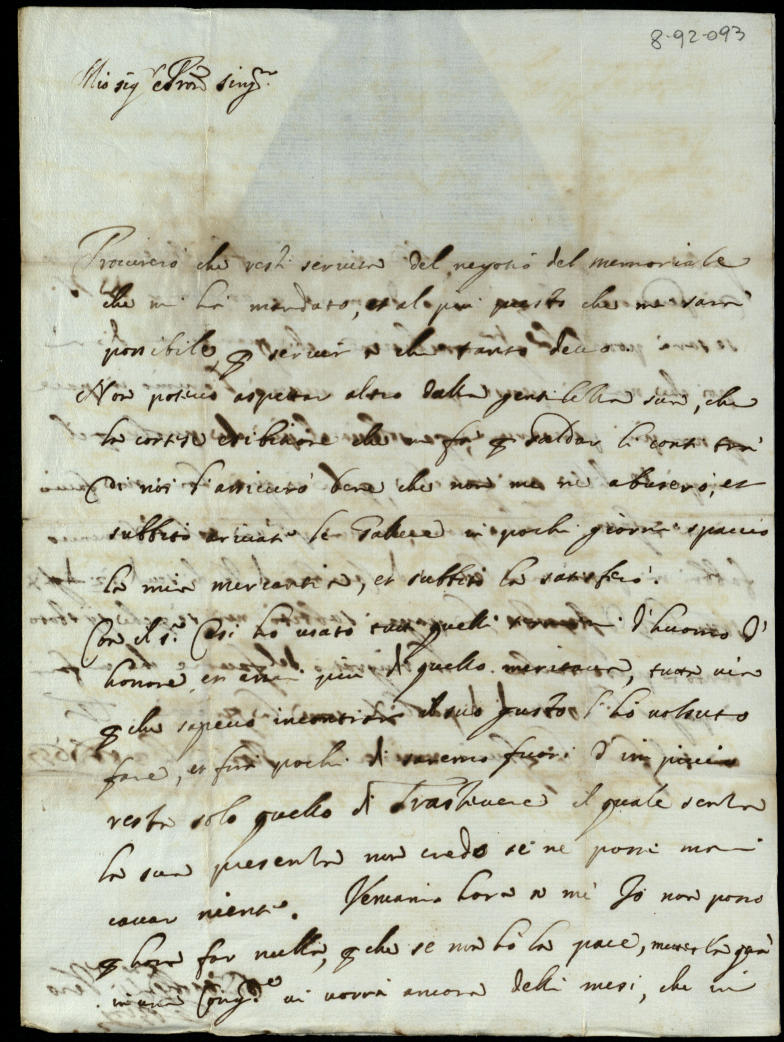 8-92-093
Mio sig.r e Pron sing.mo
Procurerò che resti servita del negotio del memoriale
che mi ha mandato, et al più presto che mi sarrà
possibile p servir a chi tanto devo.
Non potevo aspettar altro dalla gentilezza sua, che
la cortese esibitione che mi fa, p saldar li conti trà
di noi l'assicuro bene che non me ne abuserò, et
subbito arivati le Galere in pochi giorni spaccio
la mia mercantia, et subbito la satisferò.
Con il s.r Cesi ho usato tutti quelli d'huomo d'
honore, et assai più di quello meritava, tutta via
p che sapevo il suo gusto l'hò voluto
fare, et frà pochi dì saremo fuori d'
resta solo quello di Trastevere il quale senza
la sua presenza non credo se ne possi mai
cavar niente. Veniamo hora a me Io non posso
p hora far nulla, p che se non hò la pace,
in una Cong.ne vi vorrà ancora delli mesi, che in